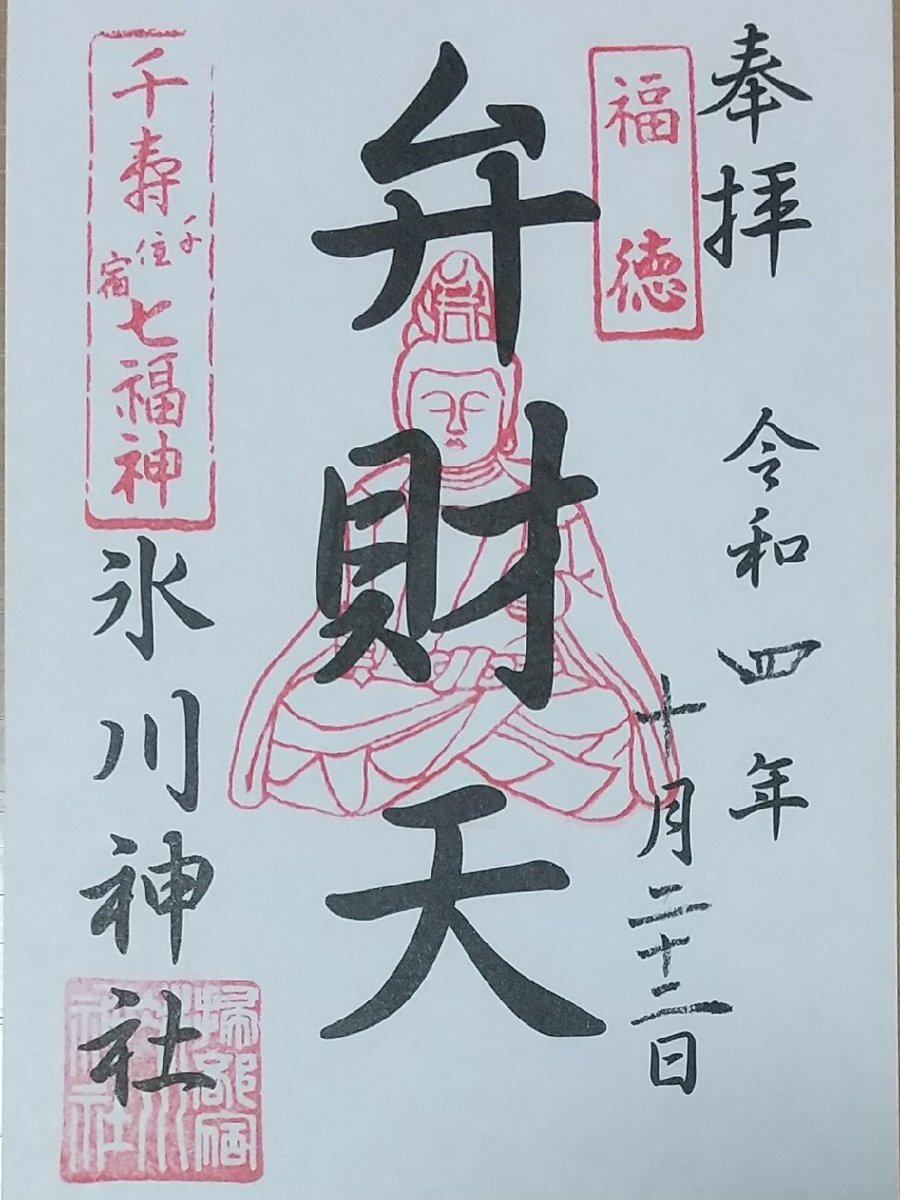 奉拝
令和四年
十月二十二日
福徳
弁財天
千寿七福神
千住宿
氷川神社
掃部宿
氷川
神社